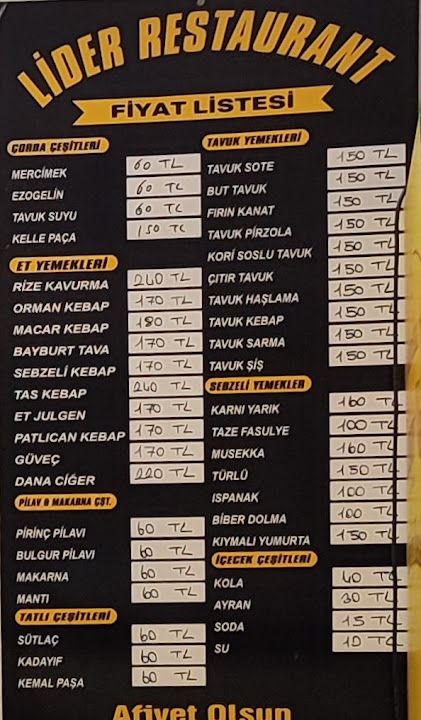 LİDER RESTAURANT
FİYAT LİSTESİ
ÇORBA ÇEŞİTLERİ
MERCİMEK 60 TL
EZOGELİN 60 TL
TAVUK SUYU 60 TL
KELLE PAÇA 150 TL
ET YEMEKLERİ
RİZE KAVURMA 240 TL
ORMAN KEBAP 170 TL
MACAR KEBAP 180 TL
BAYBURT TAVA 170 TL
SEBZELİ KEBAP 170 TL
TAS KEBAP 240 TL
ET JULGEN 170 TL
PATLICAN KEBAP 170 TL
GÜVEÇ 170 TL
DANA CİĞER 220 TL
PİLAV & MAKARNA ÇŞT.
PİRİNÇ PİLAVI 60 TL
BULGUR PİLAVI 60 TL
MAKARNA 60 TL
MANTI 60 TL
TATLI ÇEŞİTLERİ
SÜTLAÇ 60 TL
KADAYIF 60 TL
KEMAL PAŞA 60 TL
TAVUK YEMEKLERİ
TAVUK SOTE 150 TL
BUT TAVUK 150 TL
FIRIN KANAT 150 TL
TAVUK PİRZOLA 150 TL
KORİ SOSLU TAVUK 150 TL
ÇITIR TAVUK 150 TL
TAVUK HAŞLAMA 150 TL
TAVUK KEBAP 150 TL
TAVUK SARMA 150 TL
TAVUK ŞİŞ 150 TL
SEBZELİ YEMEKLER
KARNI YARIK 160 TL
TAZE FASULYE 100 TL
MUSEKKA 160 TL
TÜRLÜ 150 TL
ISPANAK 100 TL
BİBER DOLMA 100 TL
KIYMALI YUMURTA 150 TL
İÇECEK ÇEŞİTLERİ
KOLA 40 TL
AYRAN 30 TL
SODA 15 TL
SU 10 TL
Afiyet Olsun